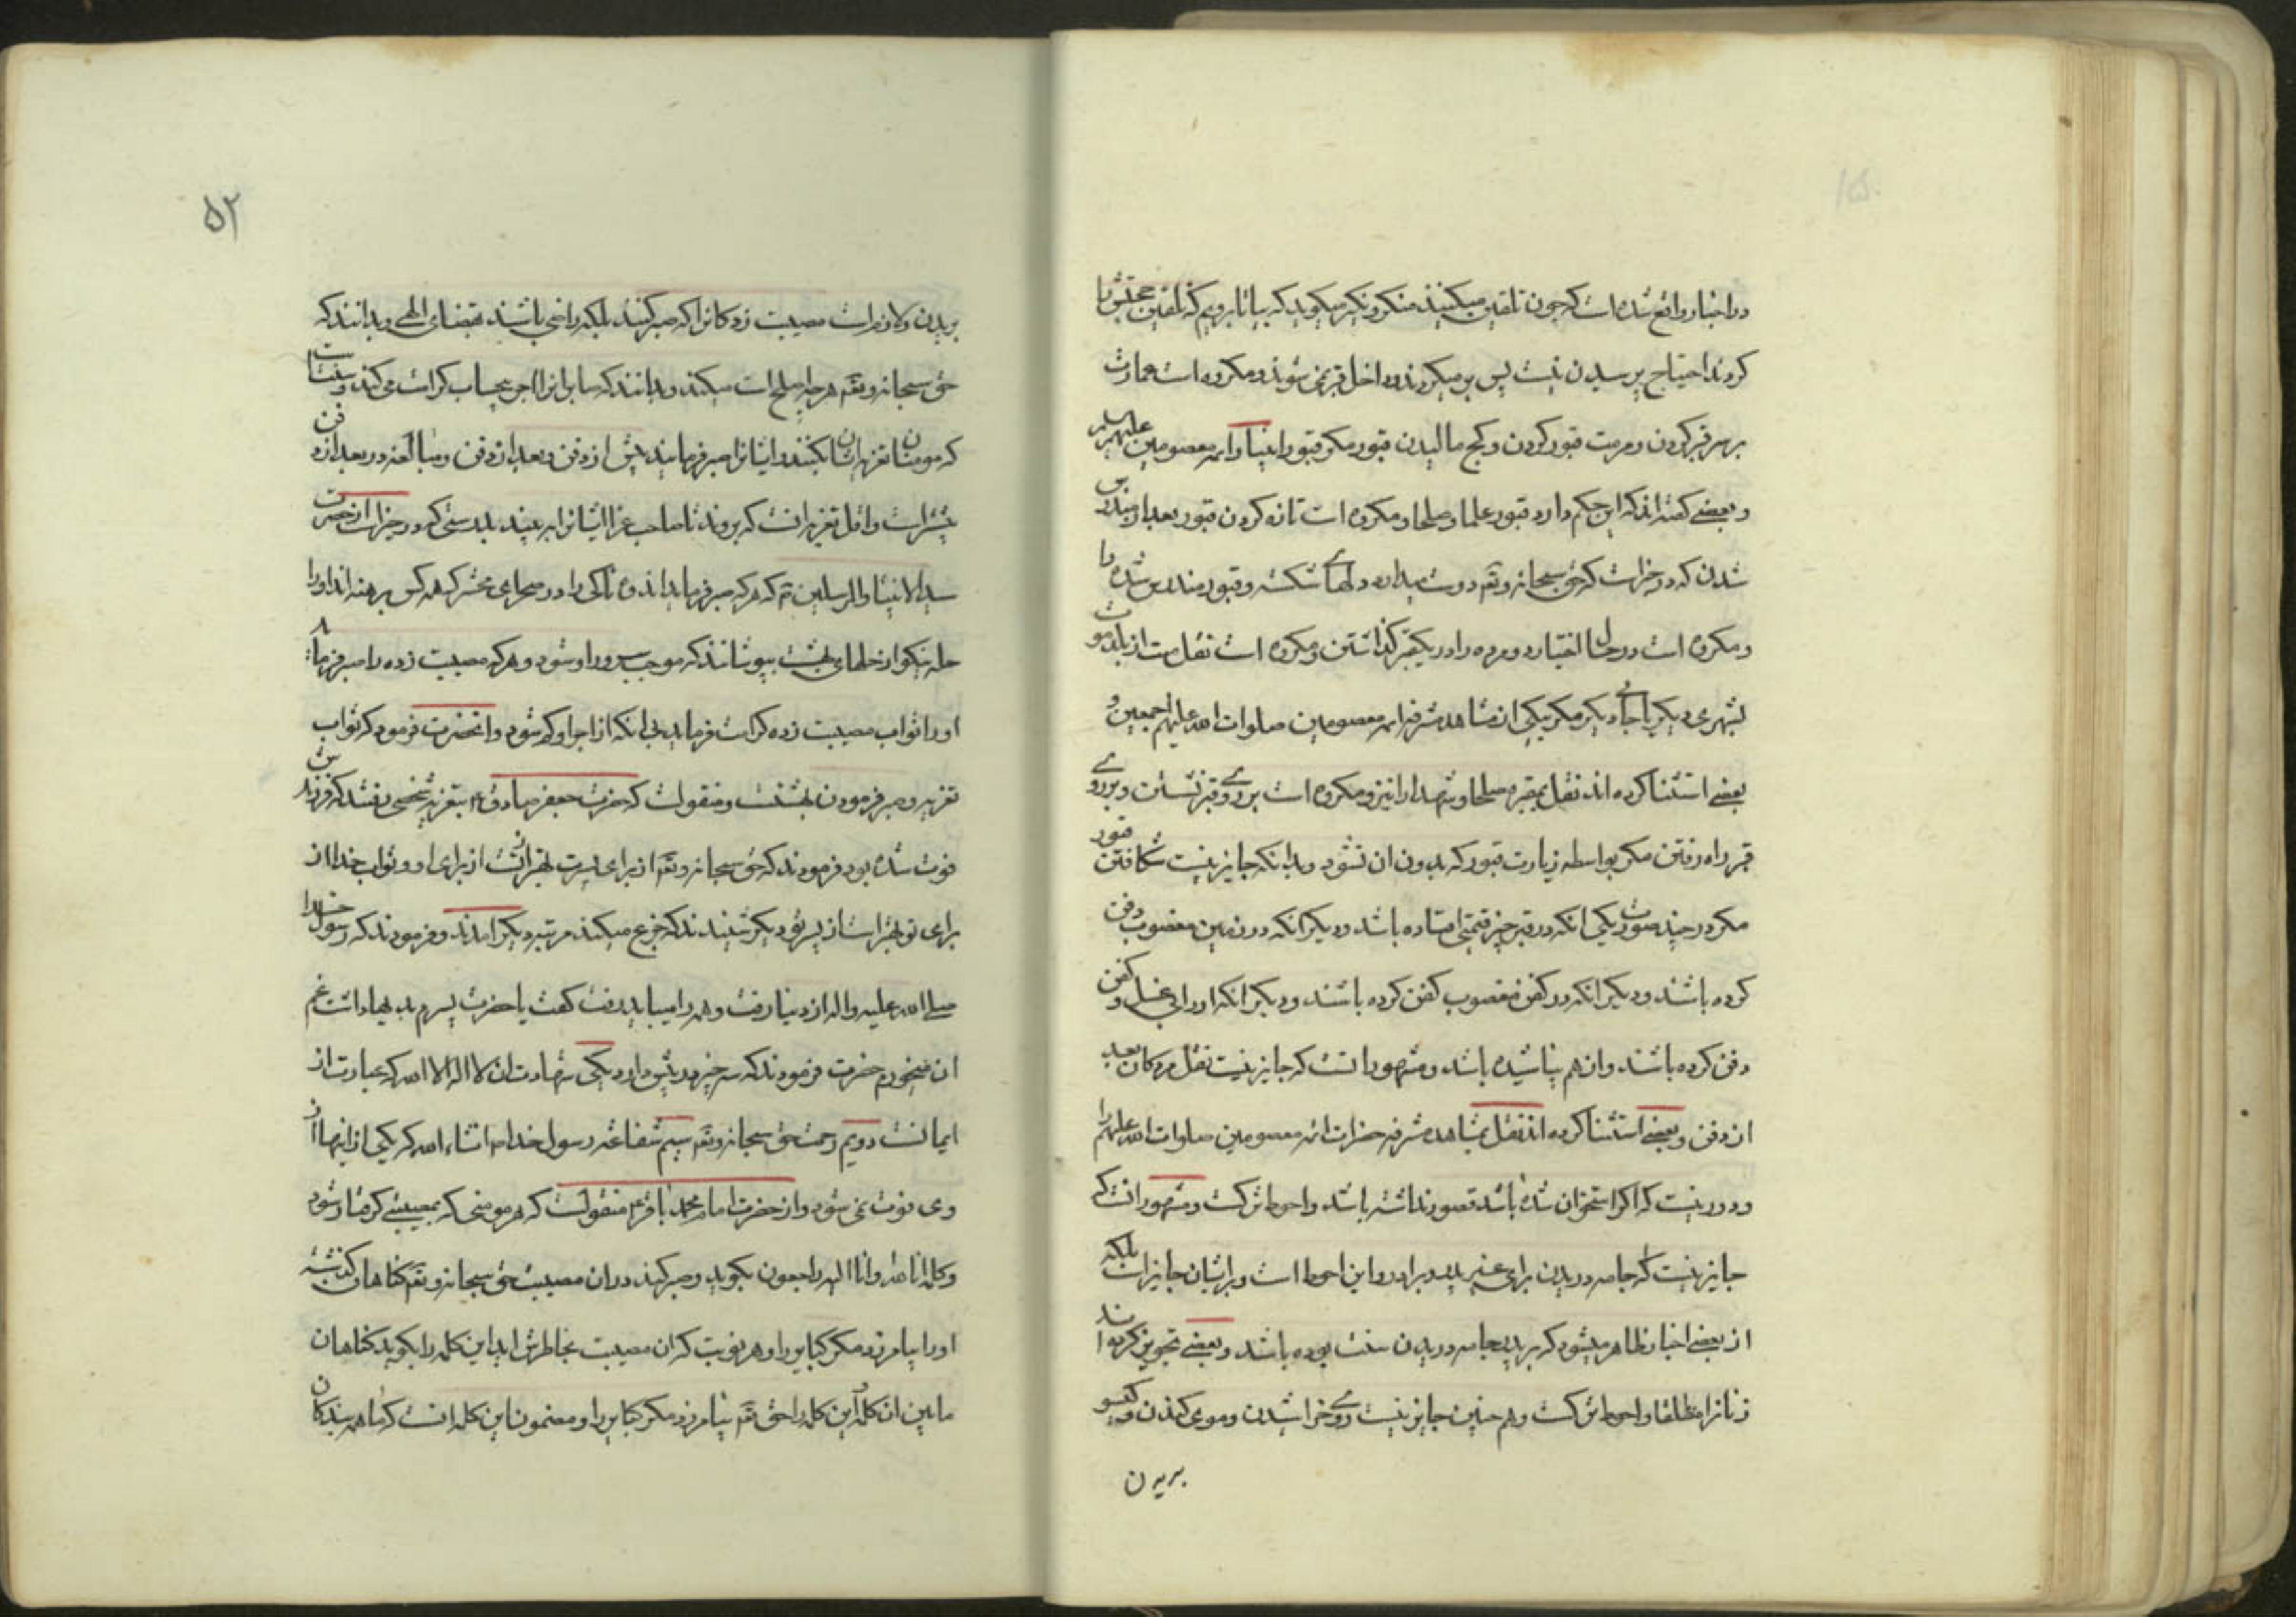 در اخبار واقع شده است که چون تلقین میکنند منکر و نکیر میکوید که بیا تا برویم که تلقین حجتش را
کردند احتیاج پرسیدن نیست پس بر میکردند و داخل قبر نمی شوند و مکروه است عمارت
بر سر قبر کردن و مرمت قبور کردن و کج مالیدن قبور مکر قبور انبیا و ائمه معصومین علیهم السلام
و بعضی کفته اند که این حکم دارد قبور علما و صلحا و مکروه است تازه کردن قبور بعد از مندرس
شدن که در خبر است که حق سبحانه و تعه دوست میدارد دلهای شکسته و قبور مندرس شده را
و مکروه است در حال اختیار دو مرده را در یکقبر کذاشتن و مکروه است نقل میت از بلد موت
بشهری دیکر یا جای دیکر مکر بیکی از مشاهد مشرفه ائمه معصومین صلوات الله علیهم اجمعین و
بعضی استثنا کرده اند نقل بمقبره صلحا و شهدا را نیز و مکروه است بر روی قبر نشستن و بر روی
قبر راه رفتن مکر بواسطه زیارت قبور که بدون ان نشود و بدانکه جایز نیست شکافتن قبور
مکر در چند صورت یکی انکه در قبر چیز قیمتی افتاده باشد و دیکر انکه در زمین مغصوب دفن
کرده باشند و دیکر انکه در کفن مغصوب کفن کرده باشند و دیکر انکه او را بی غسل و کفن
دفن کرده باشند و ان هم نپاشیده باشد و مشهور انست که جایز نیست نقل مردکان بعد
از دفن و بعضی استثنا کرده اند نقل بمشاهد مشرفه حضرات ائمه معصومین صلوات الله علیهم را
و دور نیست که اکر استخوان شده باشد قصور نداشته باشد و احوط ترکست و مشهور انست که
جایز نیست که جامه دریدن برای غیر پدر و برادر و این احوط است و برایشان جایز است بلکه
از بعضی اخبار ظاهر میشود که بر پدر جامه دریدن سنت بوده باشد و بعضی تجویز کرده اند
زنانرا مطلقا و احوط ترکست و هم چنین جایز نیست روی خراشیدن و موی کندن و کیسو
بریدن
بریدن و لازم است مصیبت زدکانرا که صبر کنند بلکه راضی باشند بقضای الهی و بدانند که
حق سبحانه و تعه هر چه مصلحت است میکند و بدانند که صابرانرا اجر بیحساب کرامت می کند و سنت است
که مومنان تعزیه ایشان بکنند و ایشانرا صبر فرمایند پیش از دفن و بعد از دفن و مبالغه در بعد از دفن
بیشتر است و اقل تعزیه انست که بروند تا صاحب عزا ایشانرا به بیند بدرستی که در خبر است از حضرت
سید الانبیا و المرسلین ص که هر که صبر فرماید اندوهناکی را در صحرای محشر که همه کس برهنه اند او را
حله نیکو از حلهای بهشت بپوشانند که موجب سرور او شود و هر که مصیبت زده را صبر فرماید
او را ثواب مصیبت زده کرامت فرماید بی انکه از اجر او کم شود و انحضرت فرمود که ثواب
تعزیه و صبر فرمودن بهشتست و منقولست که حضرت جعفر صادق ع بتعزیه شخصی رفتند که فرزندش
فوت شده بود فرمودند که حق سبحانه و تعه از برای پسرت بهتر از تست از برای او و ثواب خدا از
برای تو بهتر است از پسر تو دیکر شنیدند که جزع میکند مرتبه دیکر امدند و فرمودند که رسول خدا
صلی الله علیه و اله از دنیا رفت و همه را میباید رفت کفت یا حضرت پسرم بد بها داشت غم
ان میخورم حضرت فرمودند که سه چیز در پیش دارد یکی شهادت ان لا اله الا الله که عبارت از
ایمانست دویم رحمت حق سبحانه و تعه سیم شفاعت رسول خدا ص انشاء الله که یکی از اینها از
وی فوت نمی شود و از حضرت امام محمد باقر ع منقولست که هر مومنی که بمصیبتی کرفتار شود
و کلمه انا لله و انا الیه راجعون بکوید و صبر کند در ان مصیبت حق سبحانه و تعه کناهان کذشته
او را بیامرزد مکر کبایر را و هر نوبت که ان مصیبت بخاطرش اید این کلمه را بکوید کناهان
مابین ان کلمه و این کلمه را حق تعه بیامرزد مکر کبایر را و مضمون این کلمه انست که ما همه بندکان
۵۲